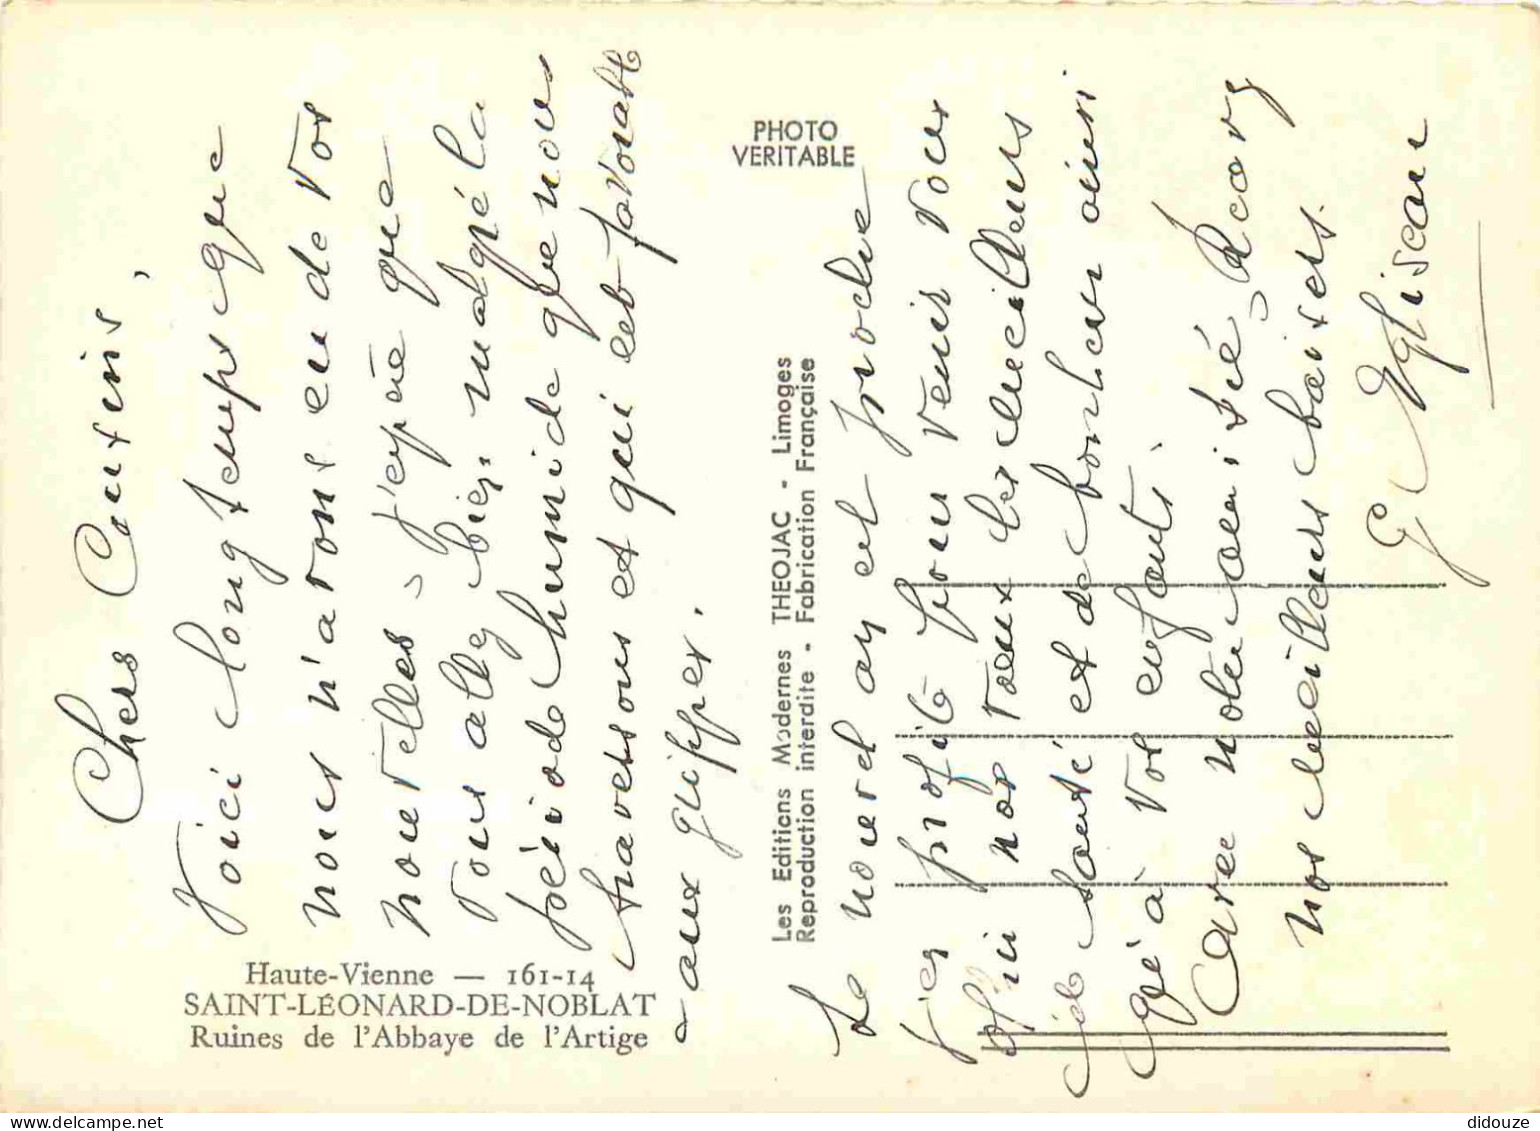 Haute-Vienne — 161-14
SAINT-LÉONARD-DE-NOBLAT
Ruines de l'Abbaye de l'Artige
PHOTO
VERITABLE
Les Editions Modernes THEOJAC - Limoges
Reproduction interdite - Fabrication Française
Chers Cousins,
Voici longtemps que
nous n'avons eu de vos
nouvelles, j'espère que
vous allez bien, malgré la
période humide que nous
traversons et qui est favorable
aux grippes.
Le nouvel an est proche
j'en profite pour venir vous
offrir nos vœux les meilleurs
de santé et de bonheur ainsi
qu'à vos enfants.
Avec notre amitié, 
nos meilleurs baisers.
G